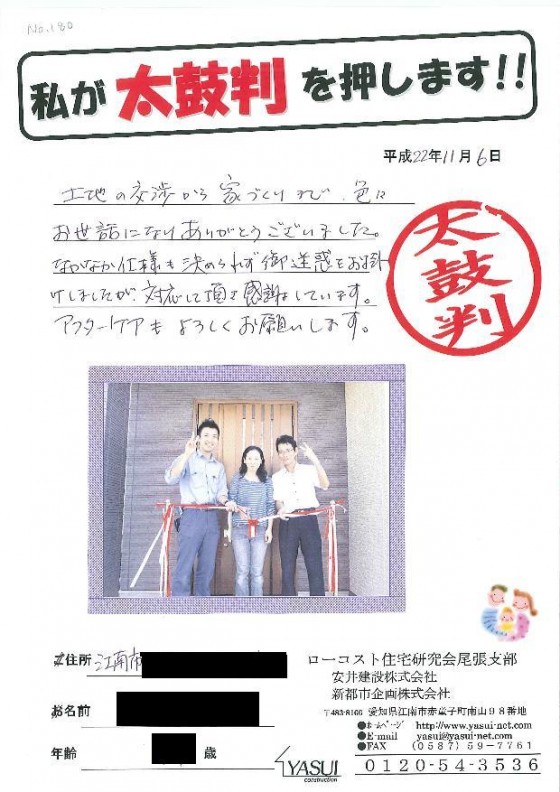 No.180
私が太鼓判を押します!!
平成22年11月6日
土地の交渉から家づくりまで、色々
お世話になりありがとうございました。
なかなか仕様も決められず御迷惑をお掛
けしましたが、対応して頂き感謝しています。
アフターケアもよろしくお願いします。
太鼓判
ご住所 江南市
お名前
年齢 歳
ローコスト住宅研究会尾張支部
安井建設株式会社
新都市企画株式会社
〒483-8166 愛知県江南市赤童子町南山98番地
●ホームページ http://www.yasui-net.com
●E-mail yasui@yasui-net.com
●FAX (0587)59-7761
0120-54-3536
YASUI
construction